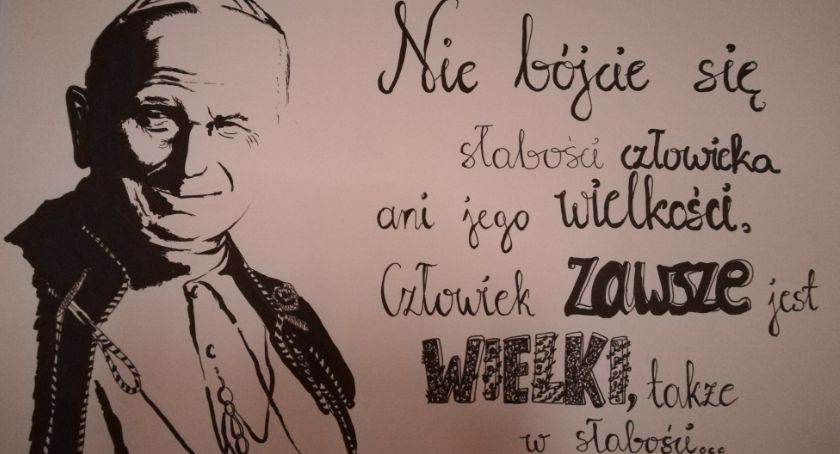 Nie bójcie się
słabości człowieka
ani jego wielkości.
Człowiek zawsze jest
WIELKI, także
w słabości...